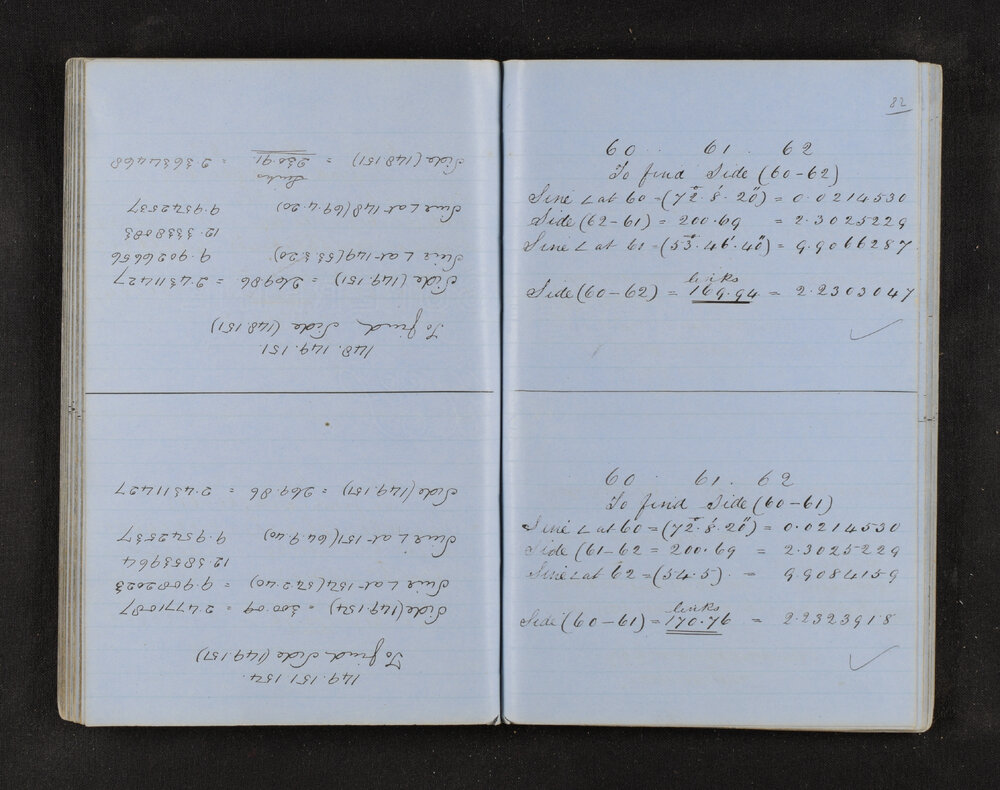 149.151.154.
To find Side (149.151)
Side (149.154) = 300.09 = 2.4771087
Sine L at 154 (54.2.40) = 9.9082023
12.3853964
Sine L at 151 (64.9.40) 9.9542537
Side (149.151) = 269.86 = 2.4311427
148.149.151
To find Side (148.151)
Side (149.151) = 269.86 = 2.4311427
Sine L at 149 (53.3.20) 9.9026656
12.3338083
Sine L at 148 (69.4.20) 9.9542537
Links
Side (148.151) = 230.91. = 2.3634468
82
60 . . 61 . 62
To find Side (60-62)
Sine ∠ at 60 = (72°. 8'. 20") = 0.0214530
Side (62-61) = 200.69 = 2.3025229
Sine ∠ at 61 = (53°. 46'. 40") = 9.9066287
links
Side (60-62) = 169.94 = 2.2303047
60 . 61 . 62
To find Side (60-61)
Sine ∠ at 60 = (72°. 8'. 20") = 0.0214530
Side (61-62 = 200.69 = 2.3025229
Sine ∠ at 62 = (54.5) . = 9.9084159
links
Side (60-61) = 170.76 = 2.2323918